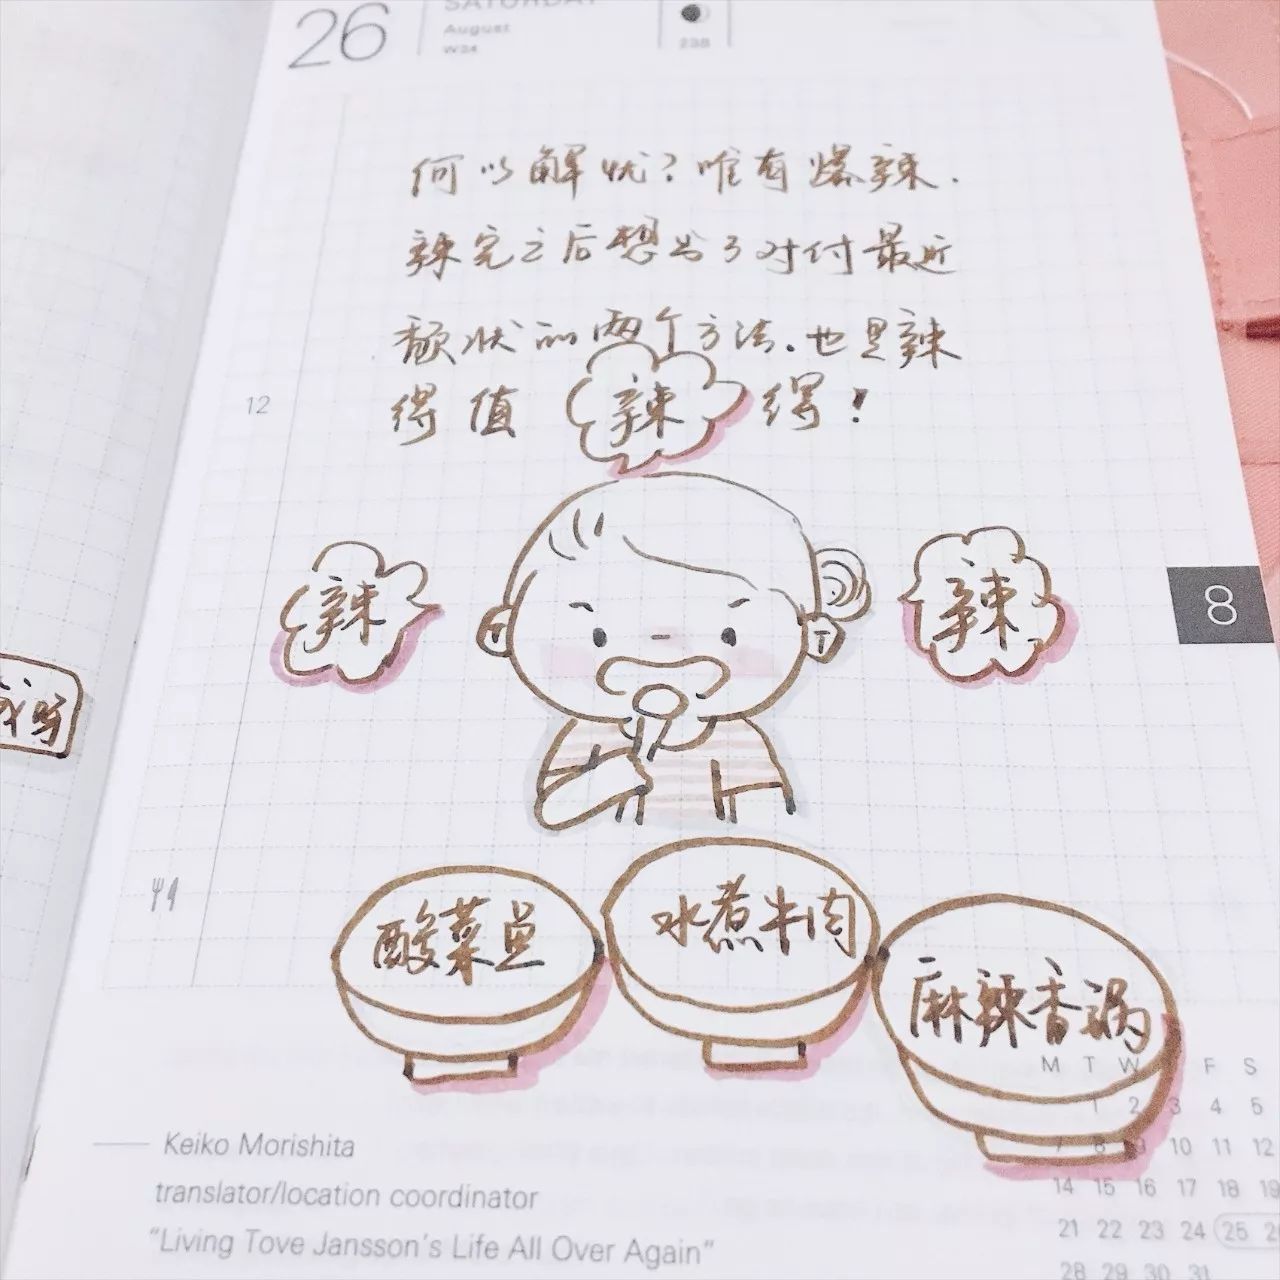 26
SATURDAY
August
W34
238
何以解忧?唯有爆辣.
辣完之后想出了对付最近
颓状的两个方法.也是辣
得值 辣 得!
12
辣
辣
8
酸菜鱼
水煮牛肉
麻辣香锅
M T W F S
1 2 3 4 5
7 8 9 10 11 12
14 15 16 17 18 19
21 22 23 24 25 2
28 29 30 31
Keiko Morishita
translator/location coordinator
"Living Tove Jansson's Life All Over Again"